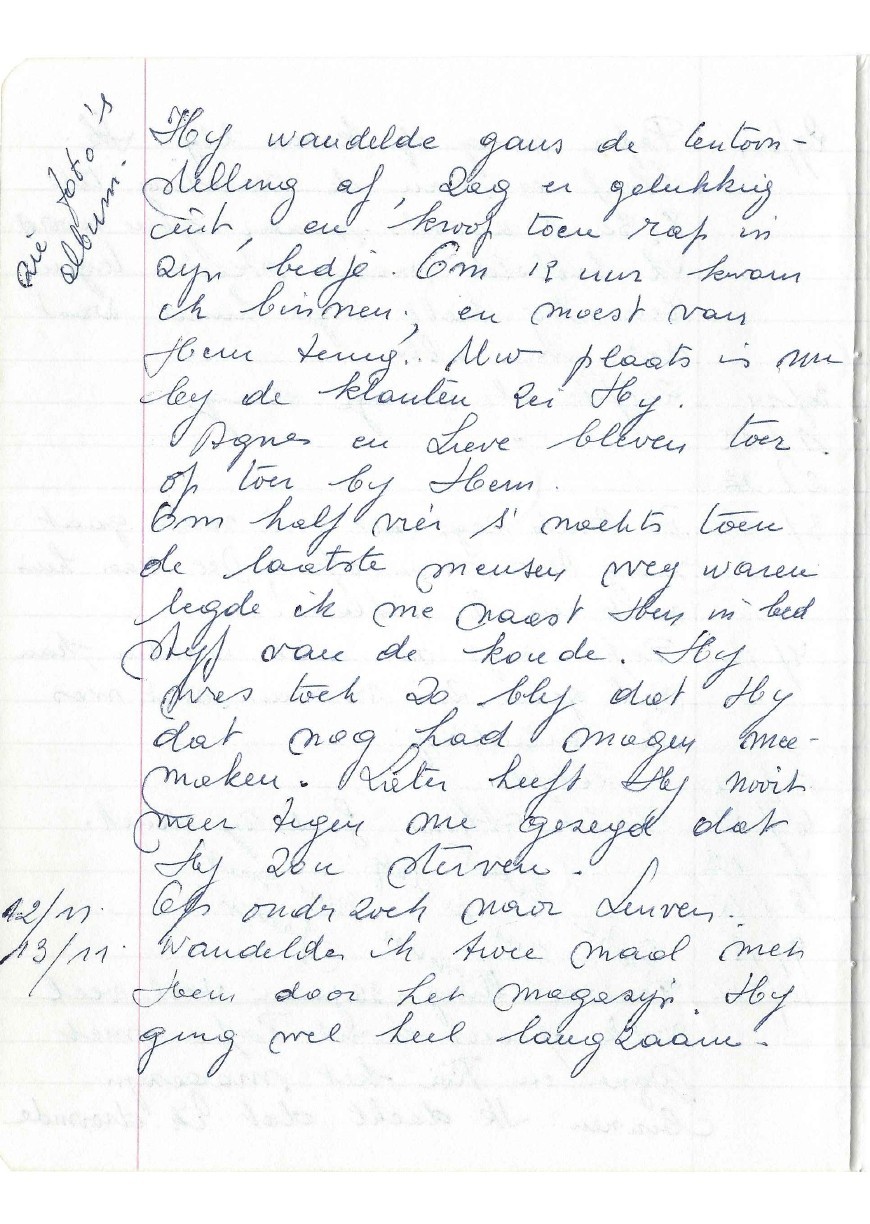 zie foto's
album.
Hy wandelde gans de tentoon-
stelling af, zag er gelukkig
uit, en kroop toen rap in
zyn bedje. Om 12 uur kwam
ik binnen, en moest van
Hem terug. Uw plaats is nu
by de klanten zei Hy.
Agnes en Lieve bleven toer
op toer by Hem.
Om half vier s' nachts toen
de laatste mensen weg waren
legde ik me naast Hem in bed
styf van de koude. Hy
was toch zo bly dat Hy
dat nog had mogen mee-
maken. Later heeft Hy nooit
meer tegen me gezegd dat
Hy zou sterven.
12/11. Op onderzoek naar Leuven.
13/11. Wandelde ik twee maal met
Hem door het magazyn. Hy
ging wel heel langzaam.